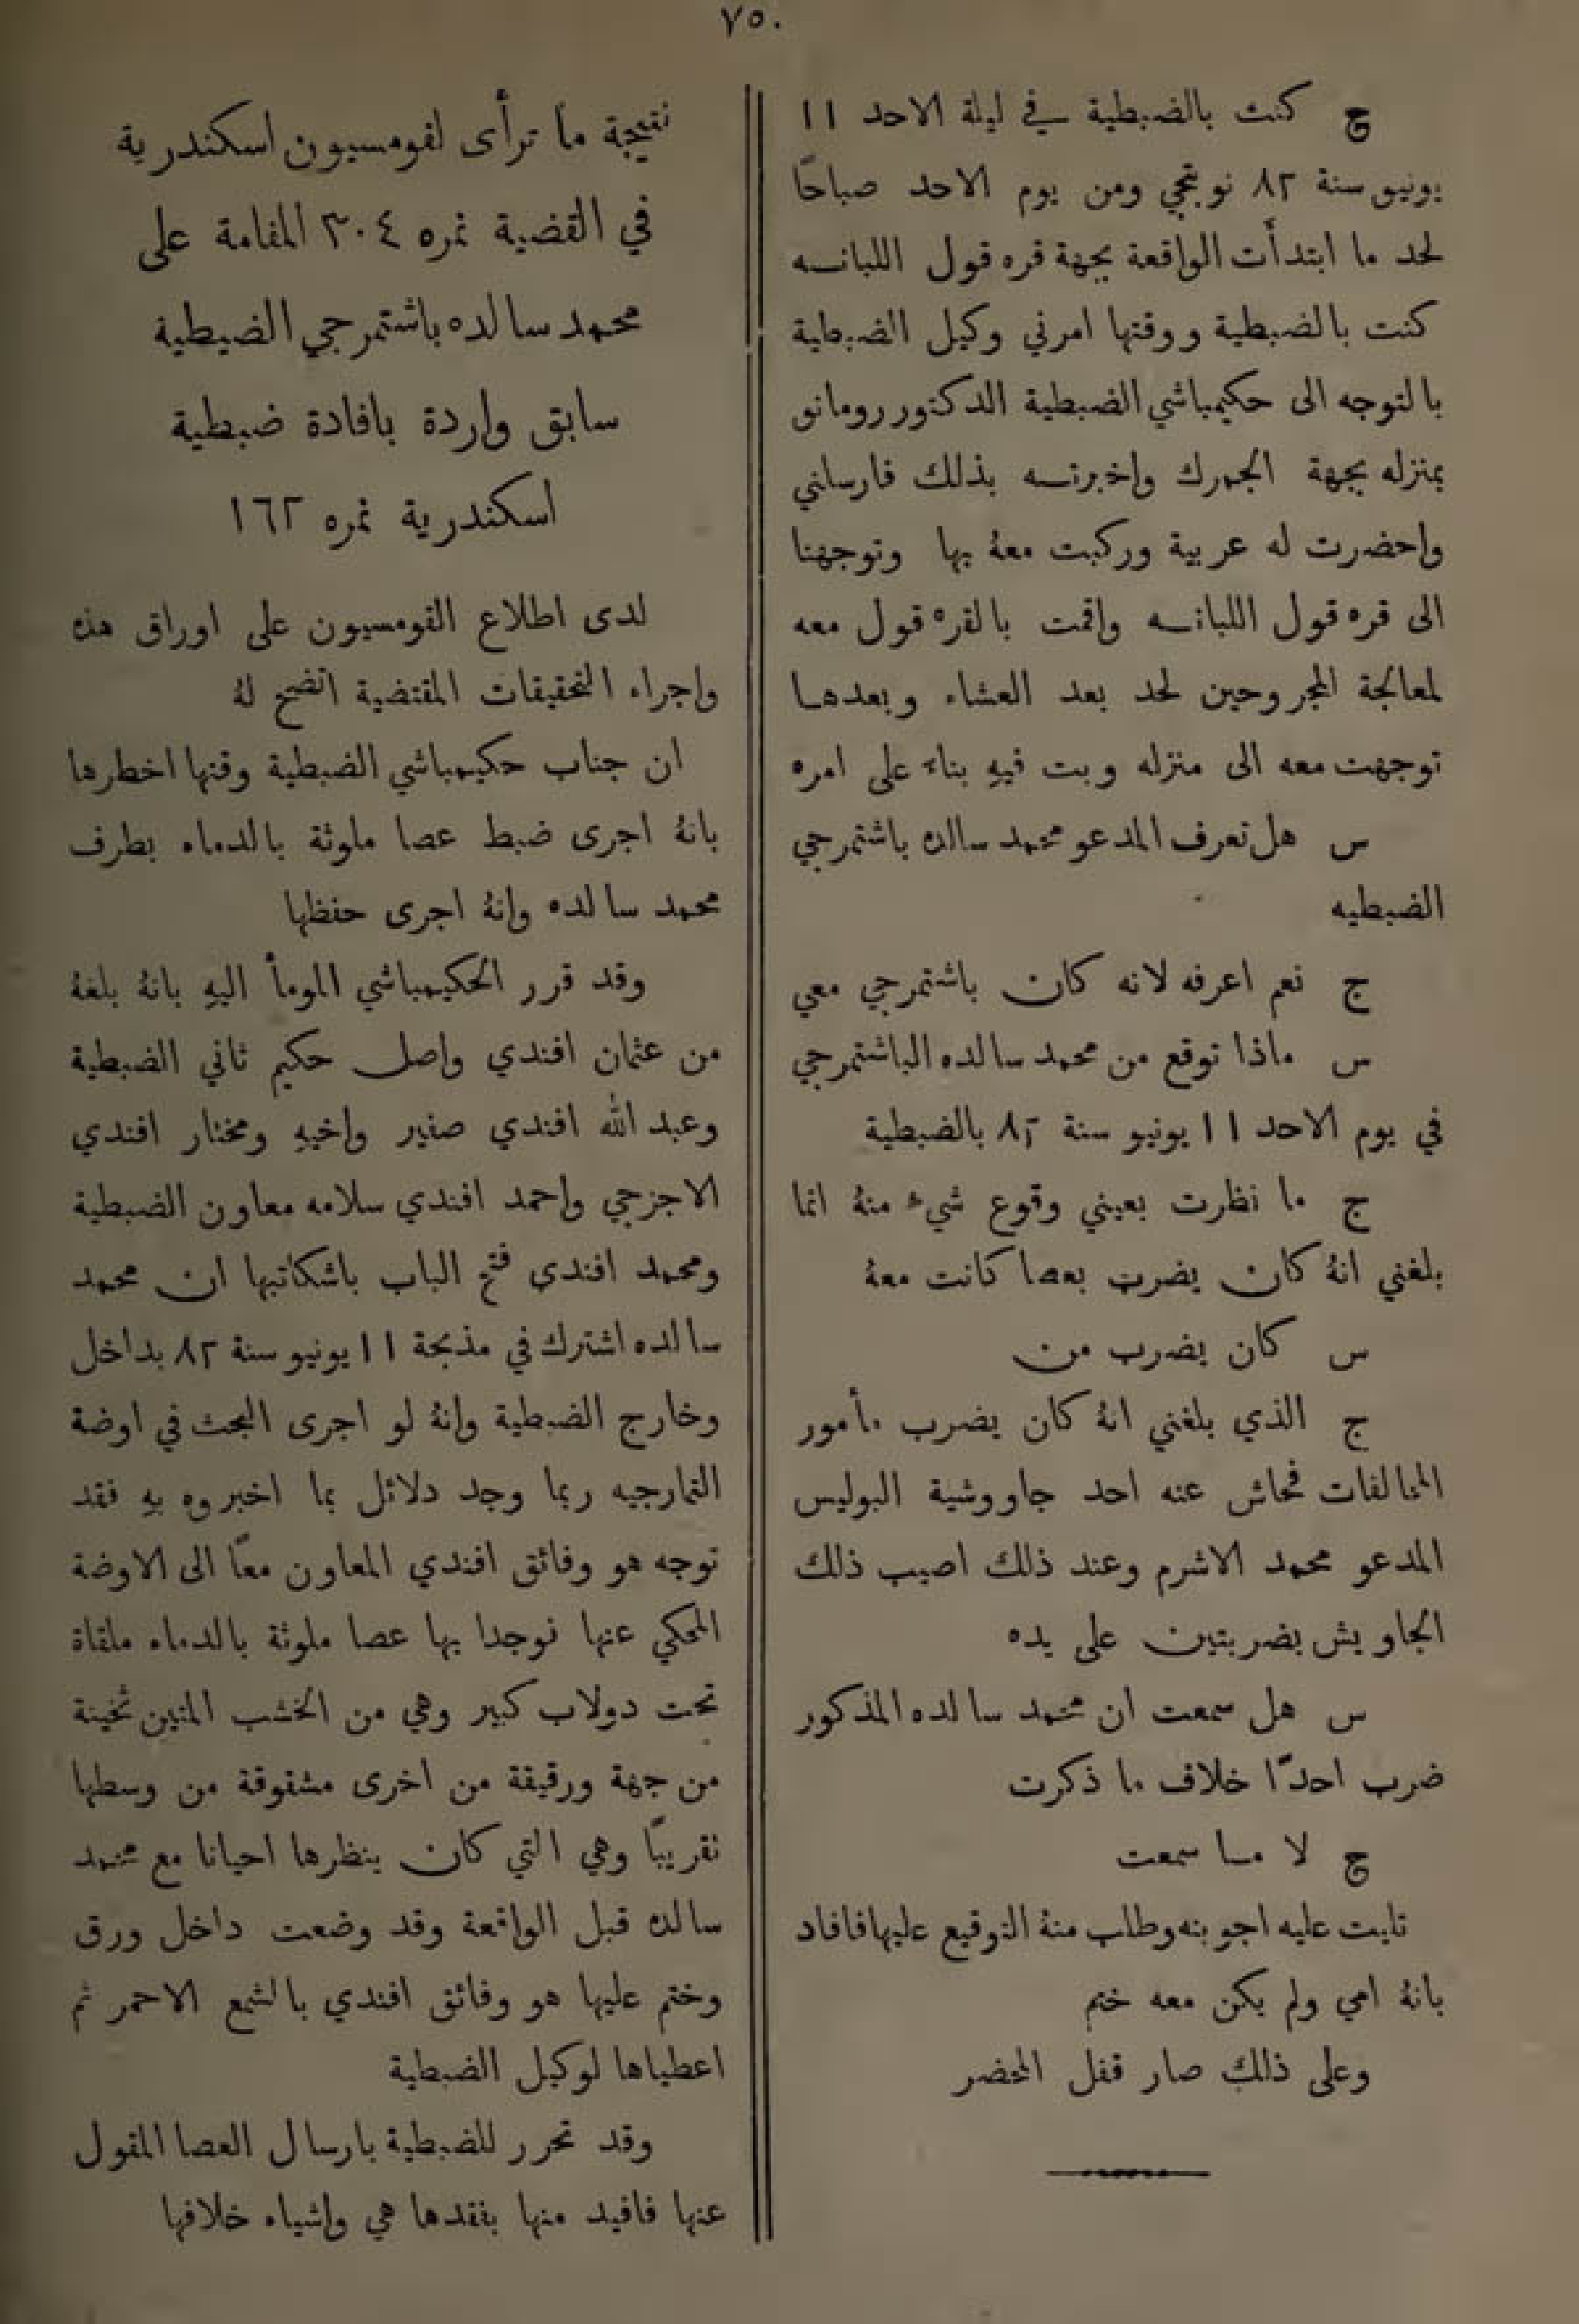 ٧٥٠
ج كنت بالضبطية في ليلة الاحد ١١
يونيو سنة ٨٢ نوبتجي ومن يوم الاحد صباحًا
لحد ما ابتدأت الواقعة بجهة قره قول اللبانــه
كنت بالضبطية ووقتها امرني وكيل الضبطية
بالتوجه الى حكيمباشي الضبطية الدكتور رومانو
بمنزله بجهة الجمرك واخبرتــه بذلك فارسلني
واحضرت له عربية وركبت معهُ بها وتوجهنا
الى قره قول اللبانــه واقمت بالقره قول معه
لمعالجة المجروحين لحد بعد العشاء وبعدهــا
توجهت معه الى منزله وبت فيهِ بناءً على امره
س هل تعرف المدعو محمد سالده باشتمرجي
الضبطيه
ج نعم اعرفه لانه كان باشتمرجي معي
س ماذا توقع من محمد سالده الباشتمرجي
في يوم الاحد ١١ يونيو سنة ٨٢ بالضبطية
ج ما نظرت بعيني وقوع شيء منهُ انما
بلغني انهُ كان يضرب بعصا كانت معهُ
س كان يضرب من
ج الذي بلغني انهُ كان يضرب مأمور
المخالفات فحاش عنه احد جاووشية البوليس
المدعو محمد الاشرم وعند ذلك اصيب ذلك
الجاويش بضربتين على يده
س هل سمعت ان محمد سالده المذكور
ضرب احدًا خلاف ما ذكرت
ج لا مــا سمعت
تليت عليه اجوبته وطلب منهُ التوقيع عليها فافاد
بانهُ امي ولم يكن معه ختم
وعلى ذلك صار قفل المحضر
نتيجة ما ترأى لقومسيون اسكندرية
في القضية نمره ٣٠٤ المقامة على
محمد سالده باشتمرجي الضبطية
سابق واردة بافادة ضبطية
اسكندرية نمره ١٦٢
لدى اطلاع القومسيون على اوراق هذه
واجراء التحقيقات المقتضية اتضح لهُ
ان جناب حكيمباشي الضبطية وقتها اخطرها
بانهُ اجرى ضبط عصا ملوثة بالدماء بطرف
محمد سالده وانهُ اجرى حفظها
وقد قرر الحكيمباشي المومأ اليهِ بانهُ بلغهُ
من عثمان افندي واصل حكيم ثاني الضبطية
وعبد الله افندي صفير واخيهِ ومختار افندي
الاجزجي واحمد افندي سلامه معاون الضبطية
ومحمد افندي فتح الباب باشكاتبها ان محمد
سالده اشترك في مذبحة ١١ يونيو سنة ٨٢ بداخل
وخارج الضبطية وانهُ لو اجرى البحث في اوضة
التمارجيه ربما وجد دلائل بما اخبروه بهِ فقد
توجه هو وفائق افندي المعاون معًا الى الاوضة
المحكي عنها فوجدا بها عصا ملوثة بالدماء ملقاة
تحت دولاب كبير وهي من الخشب المتين ثخينة
من جهة ورقيقة من اخرى مشقوقة من وسطها
تقريبًا وهي التي كان ينظرها احيانا مع محمد
سالده قبل الواقعة وقد وضعت داخل ورق
وختم عليها هو وفائق افندي بالشمع الاحمر ثم
اعطياها لوكيل الضبطية
وقد تحرر للضبطية بارسال العصا المقول
عنها فافيد منها بفقدها هي واشياء خلافها